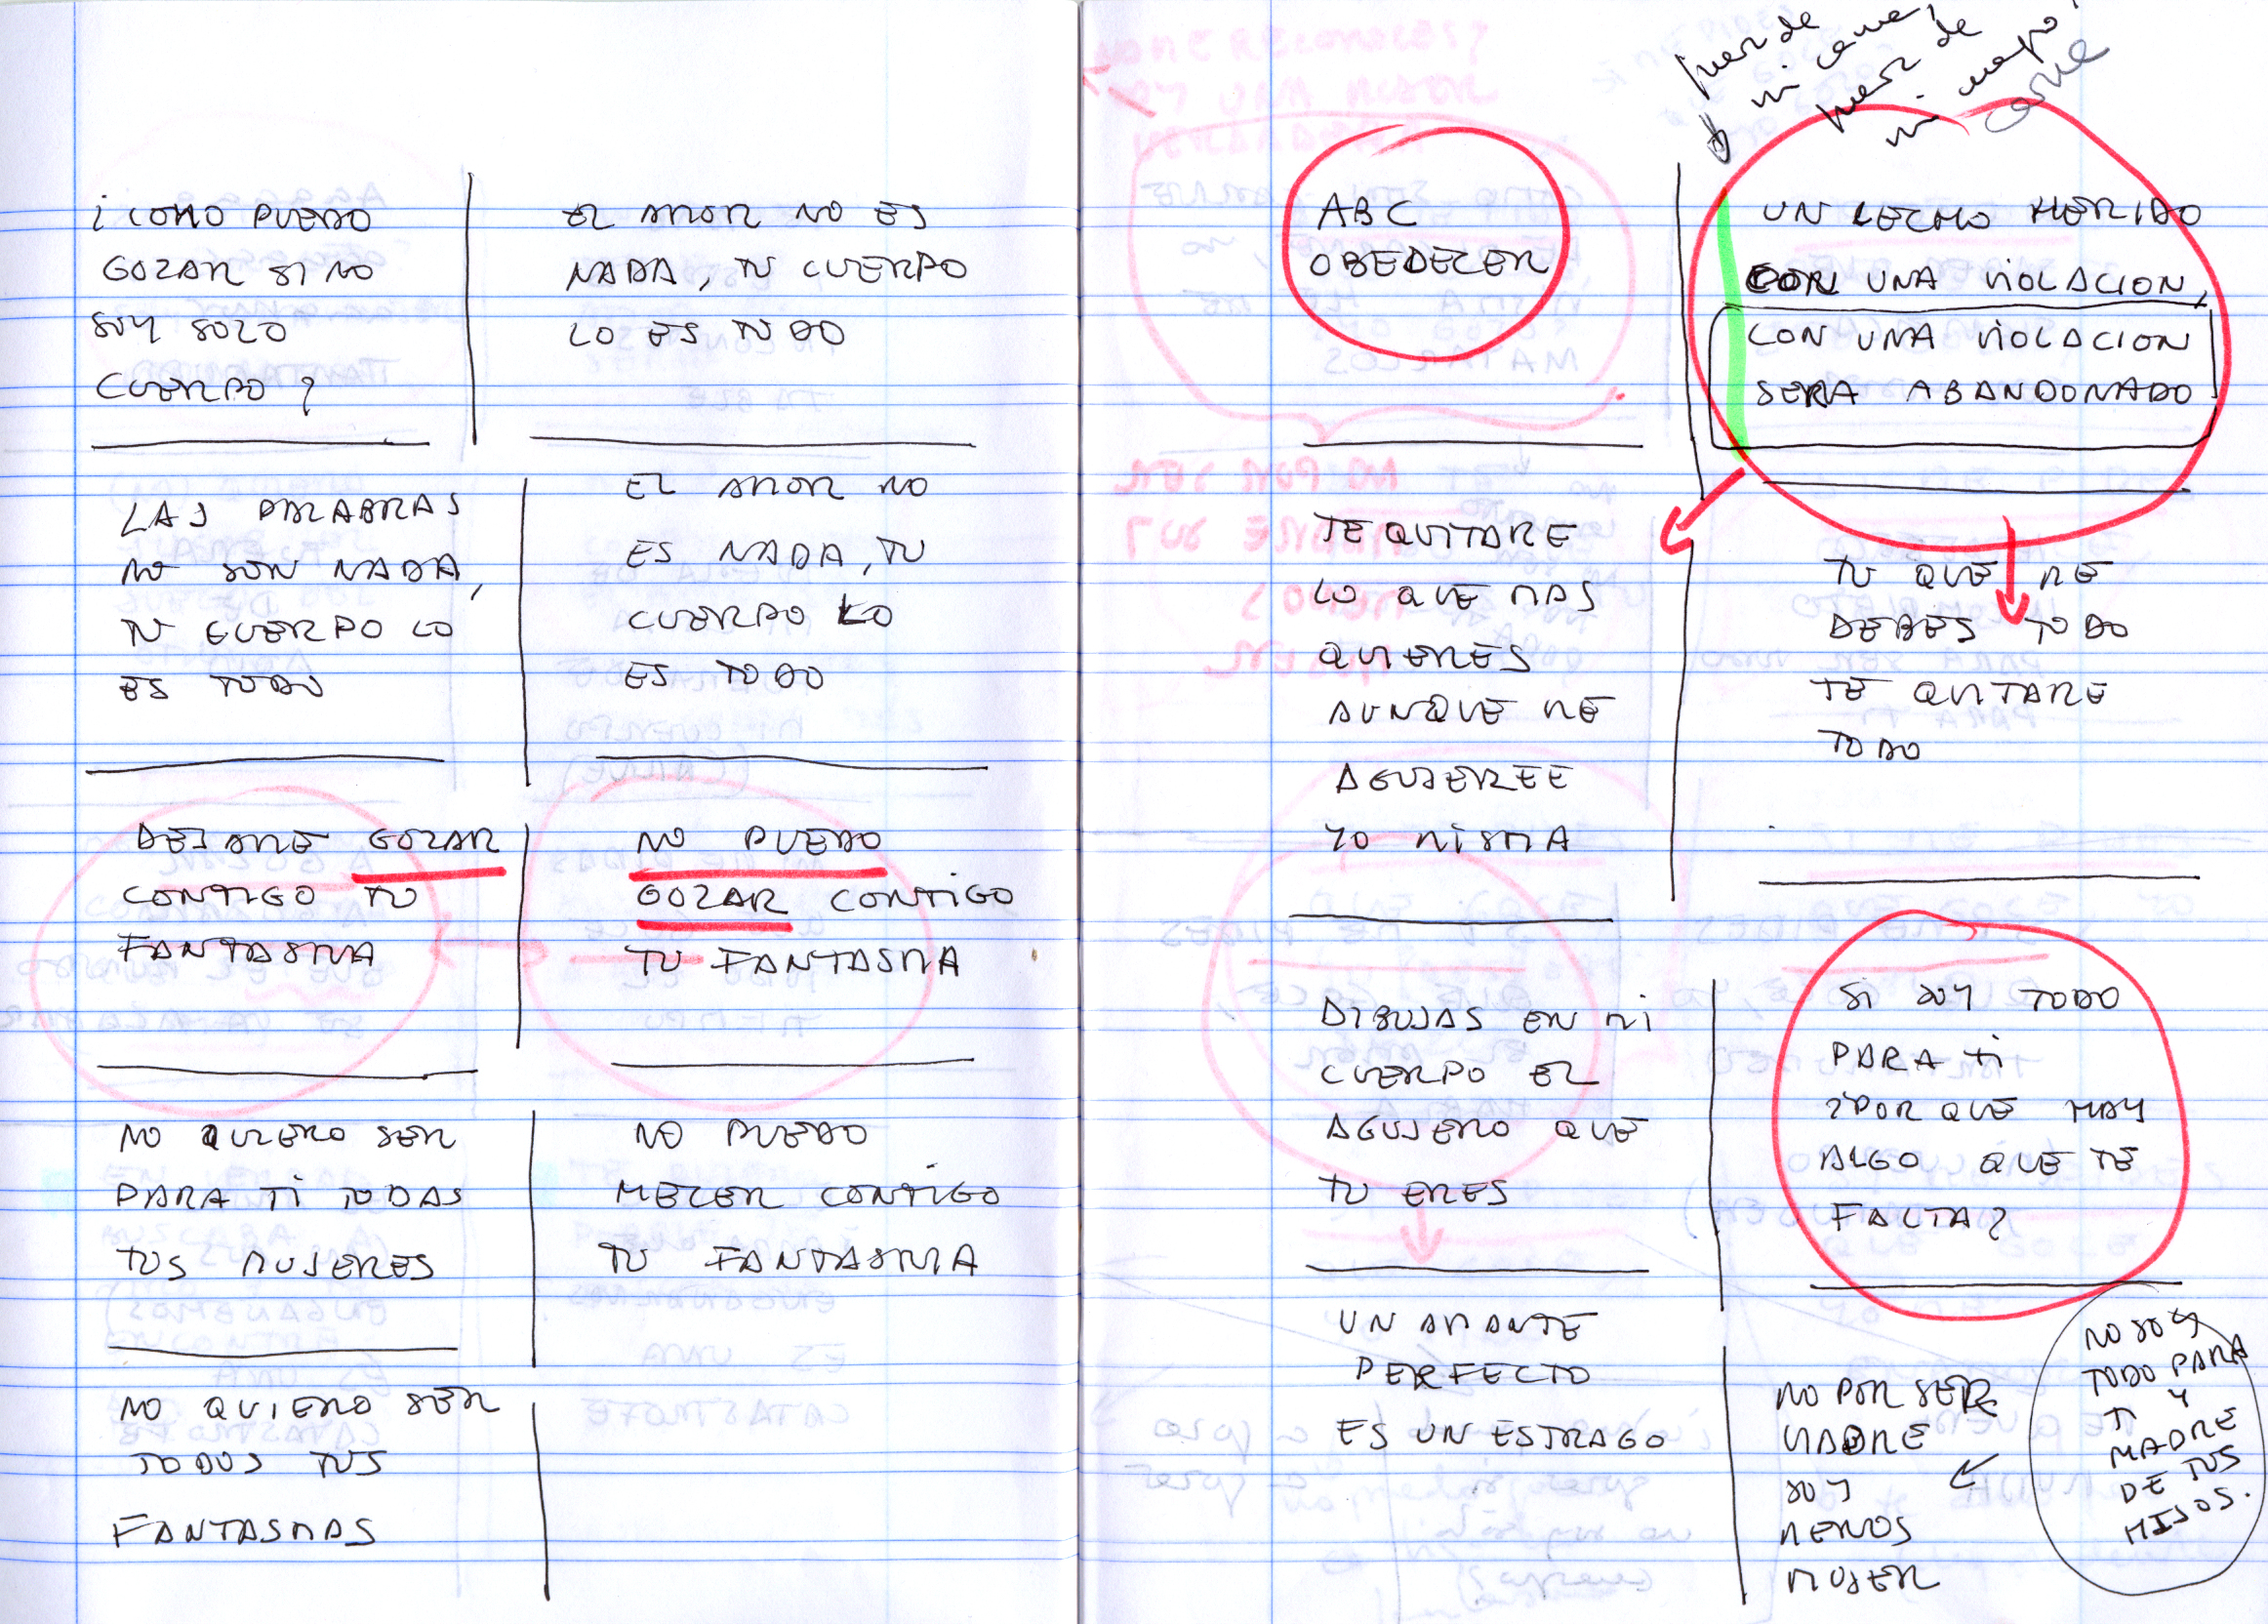 ¿COMO PUEDO
GOZAR SI NO
SOY SOLO
CUERPO?
EL AMOR NO ES
NADA, TU CUERPO
LO ES TODO
LAS PALABRAS
NO SON NADA,
TU CUERPO LO
ES TODO
EL AMOR NO
ES NADA, TU
CUERPO LO
ES TODO
DEJAME GOZAR
CONTIGO TU
FANTASMA
NO PUEDO
GOZAR CONTIGO
TU FANTASMA
NO QUIERO SER
PARA TI TODAS
TUS MUJERES
NO PUEDO
MECER CONTIGO
TU FANTASMA
NO QUIERO SER
TODOS TUS
FANTASMAS
ABC
OBEDECER
mi
mi cuerpo
carne
UN LECHO HERIDO
CON UNA VIOLACION,
CON UNA VIOLACION
SERA ABANDONADO
TE QUITARE
LO QUE MAS
QUIERES
AUNQUE ME
AGUJEREE
YO MISMA
TU QUE ME
DEBES TODO
TE QUITARE
TODO
DIBUJAS EN MI
CUERPO EL
AGUJERO QUE
TU ERES
SI SOY TODO
PARA TI
¿POR QUE HAY
ALGO QUE TE
FALTA?
UN AMANTE
PERFECTO
ES UN ESTRAGO
NO POR SER
MADRE
SOY
MENOS
MUJER
NO SOY
TODO PARA
TI Y
MADRE
DE TUS
HIJOS.